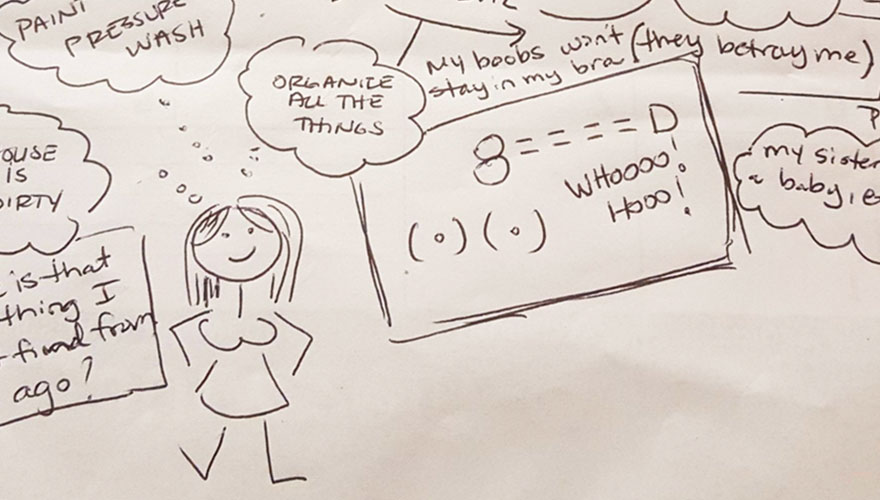 PAINT
PRESSURE
WASH
ORGANIZE
ALL THE
THINGS
My boobs won't (they betray me)
stay in my bra
8====D
WHOOOO!
HOOO!
(o) (o)
my sister
a baby, e
OUSE
IS
DIRTY
is that
thing I
find from
ago?